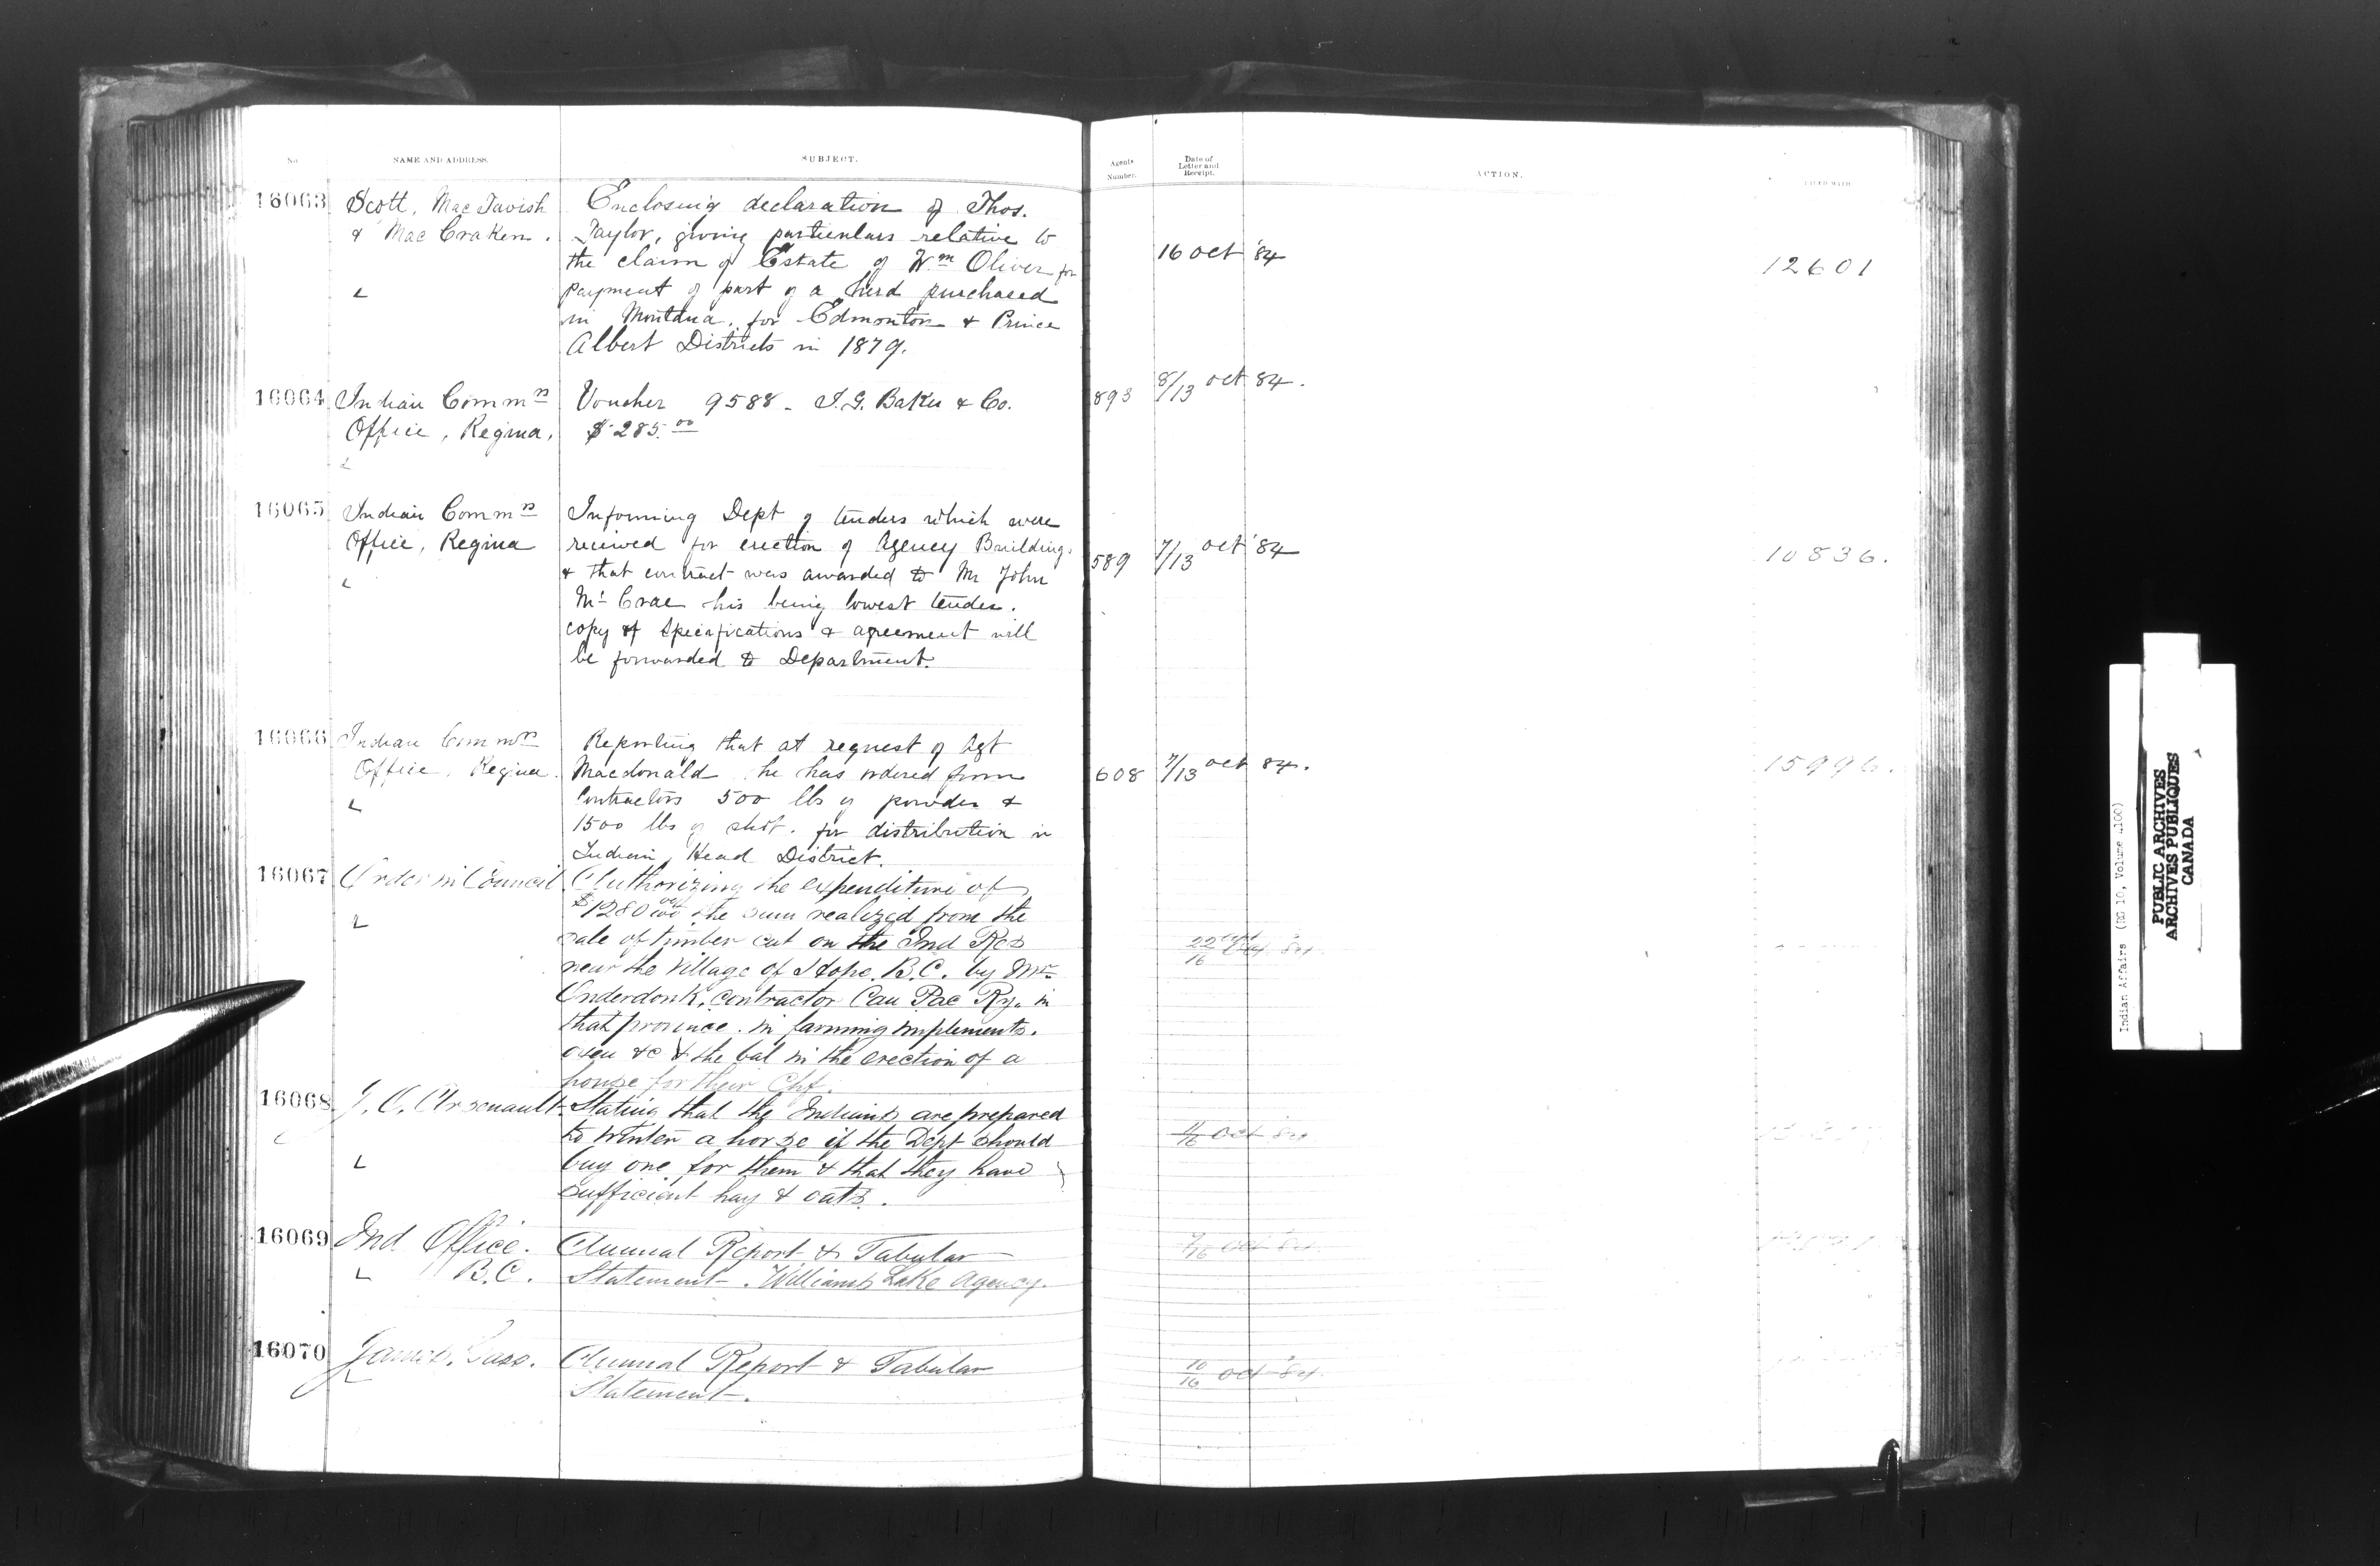 No. NAME AND ADDRESS. SUBJECT. Agents Number. Date of Letter and Receipt. ACTION. FILED WITH
16063 Scott, MacTavish Enclosing declaration of Thos.
& MacCraken. Taylor, giving particulars relative to
the claim of Estate of Wm Oliver for 16 Oct '84 12601
payment of part of a herd purchased
in Montana, for Edmonton & Prince
Albert Districts in 1879.
16064 Indian Commrs Voucher 9588 - I. G. Baker & Co. 893 8/13 Oct 84.
Office, Regina, $285.00
16065 Indian Commrs Informing Dept of tenders which were
Office, Regina received for erection of Agency Buildings 589 7/13 Oct '84 10836.
& that contract was awarded to Mr John
McCrae his being lowest tender.
copy of specifications & agreement will
be forwarded to Department.
16066 Indian Commrs Reporting that at request of Agt
Office, Regina. Macdonald he has ordered from 608 7/13 Oct 84. 15996.
Contractors 500 lbs of powder &
1500 lbs of shot. for distribution in
Indian Head District.
16067 Order in Council Authorizing the expenditure of
$1280 the sum realized from the
sale of timber cut on the Ind Res
near the Village of Hope. B.C. by Mr
Onderdonk, contractor Can Pac Ry. in
that province. in farming implements.
oxen &c & the bal in the erection of a
house for their Chf.
16068 J. O. Arsenault Stating that the Indians are prepared
to winter a horse if the Dept should Oct 84
buy one for them & that they have
sufficient hay & oats.
16069 Ind Office. Annual Report & Tabular Oct 84
B.C. Statement - Williams Lake Agency.
16070 James. Annual Report & Tabular 10/16 Oct 84
Statement.
Indian Affairs (RG 10, Volume 4100)
PUBLIC ARCHIVES
ARCHIVES PUBLIQUES
CANADA